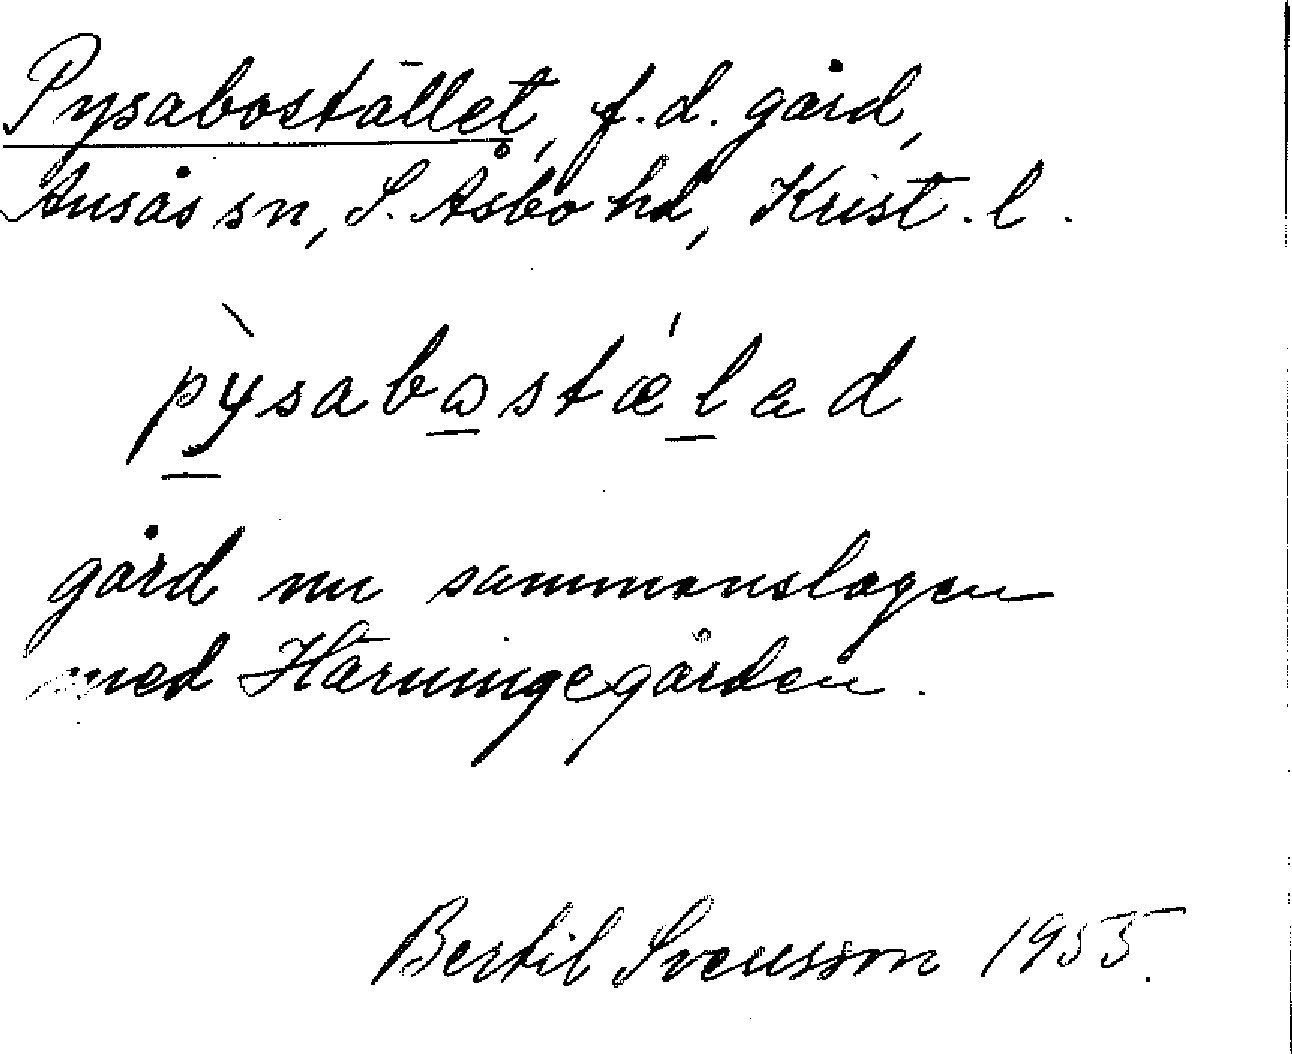 Pysabostället, f.d. gård,
Ausås sn, S. Åsbo hd, Krist. l.
pỳsabωstǽlad
gård nu sammanslagen
med Härningegården.
Bertil Svensson 1955.